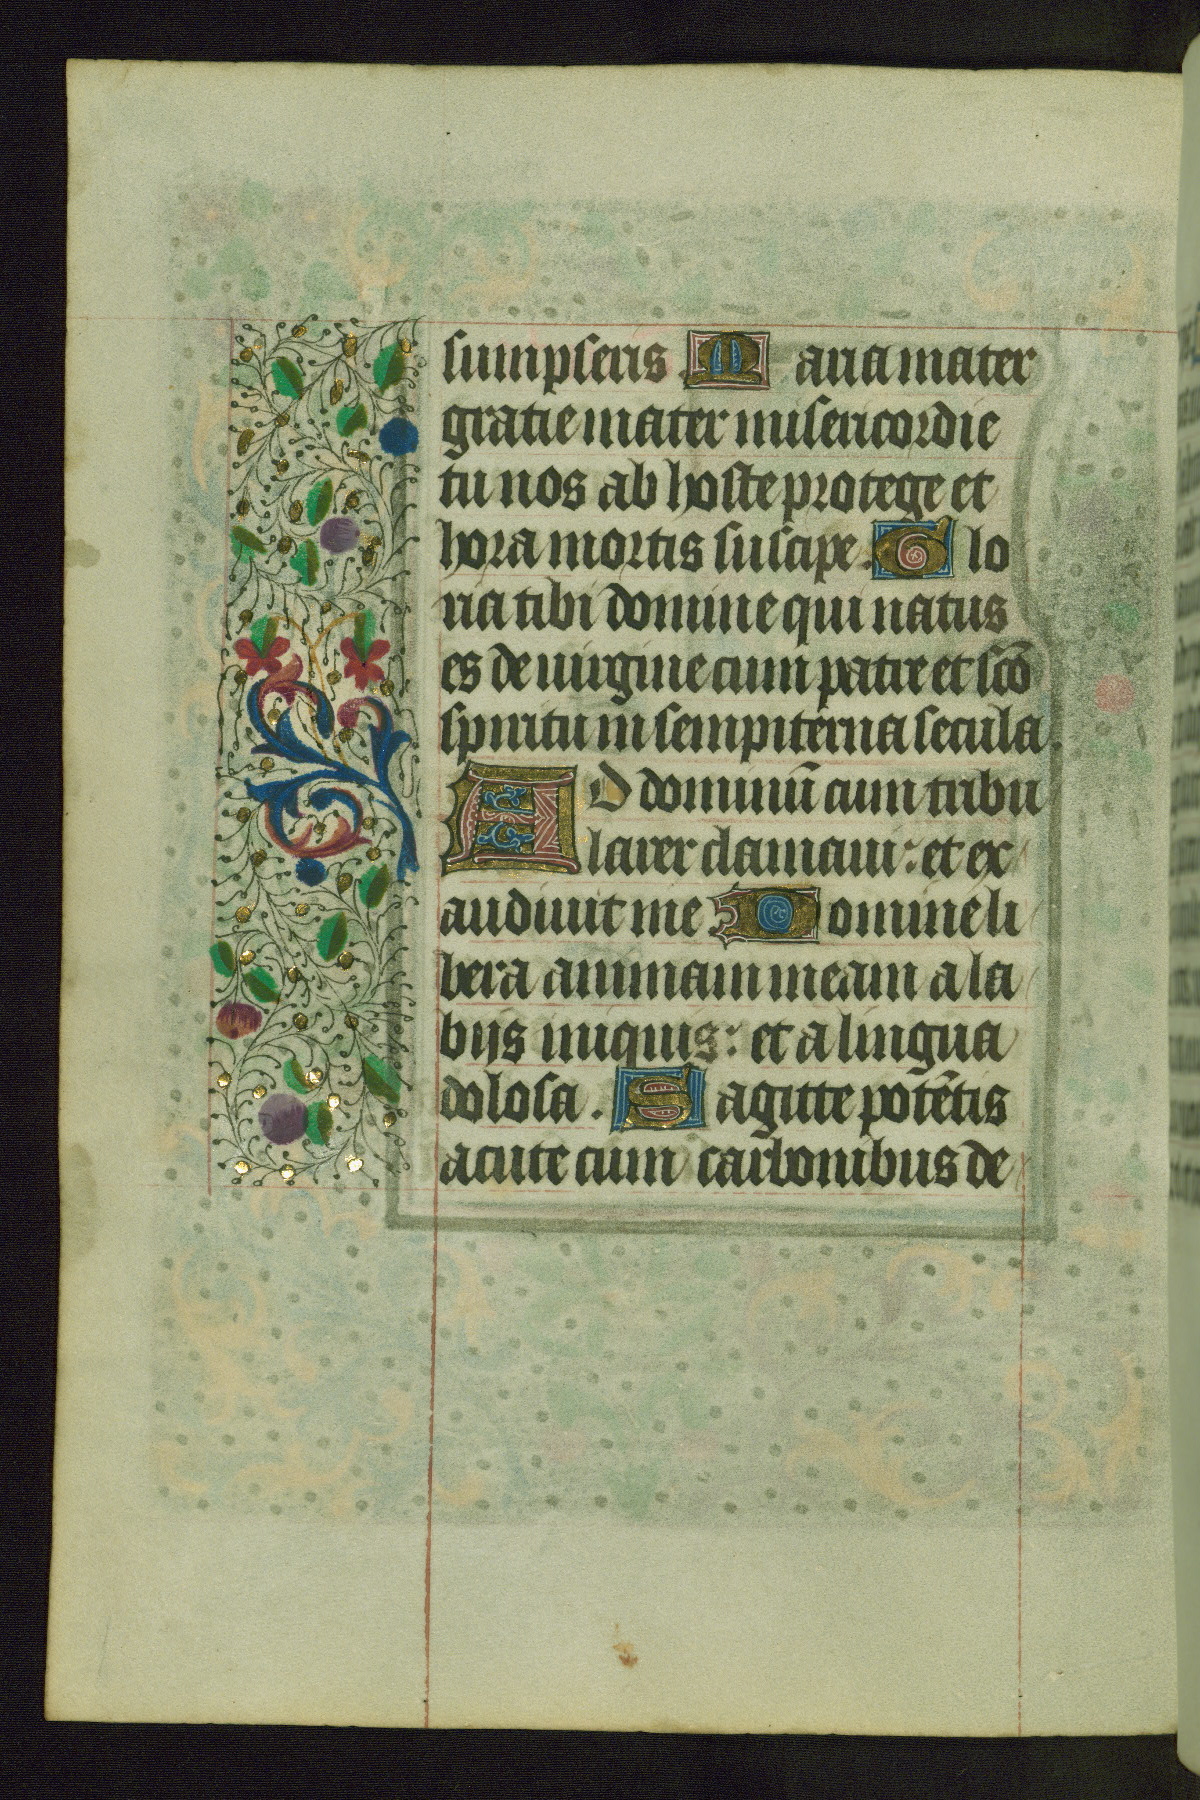 sumpseris. Maria mater
gratie mater misericordie
tu nos ab hoste protege et
hora mortis suscipe. Glo
ria tibi domine qui natus
es de uirgine cum patre et sc̃o
spiritu in sempiterna secula.
AD dominũ cum tribu
larer clamaui: et ex
audiuit me Domine li
bera animam meam a la
bijs iniquis: et a lingua
dolosa. Sagitte potẽtis
acute cum carbonibus de